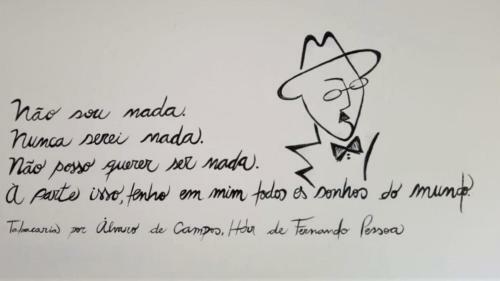 Não sou nada.
Nunca serei nada.
Não posso querer ser nada.
À parte isso, tenho em mim todos os sonhos do mundo.
Tabacaria por Álvaro de Campos, de Fernando Pessoa